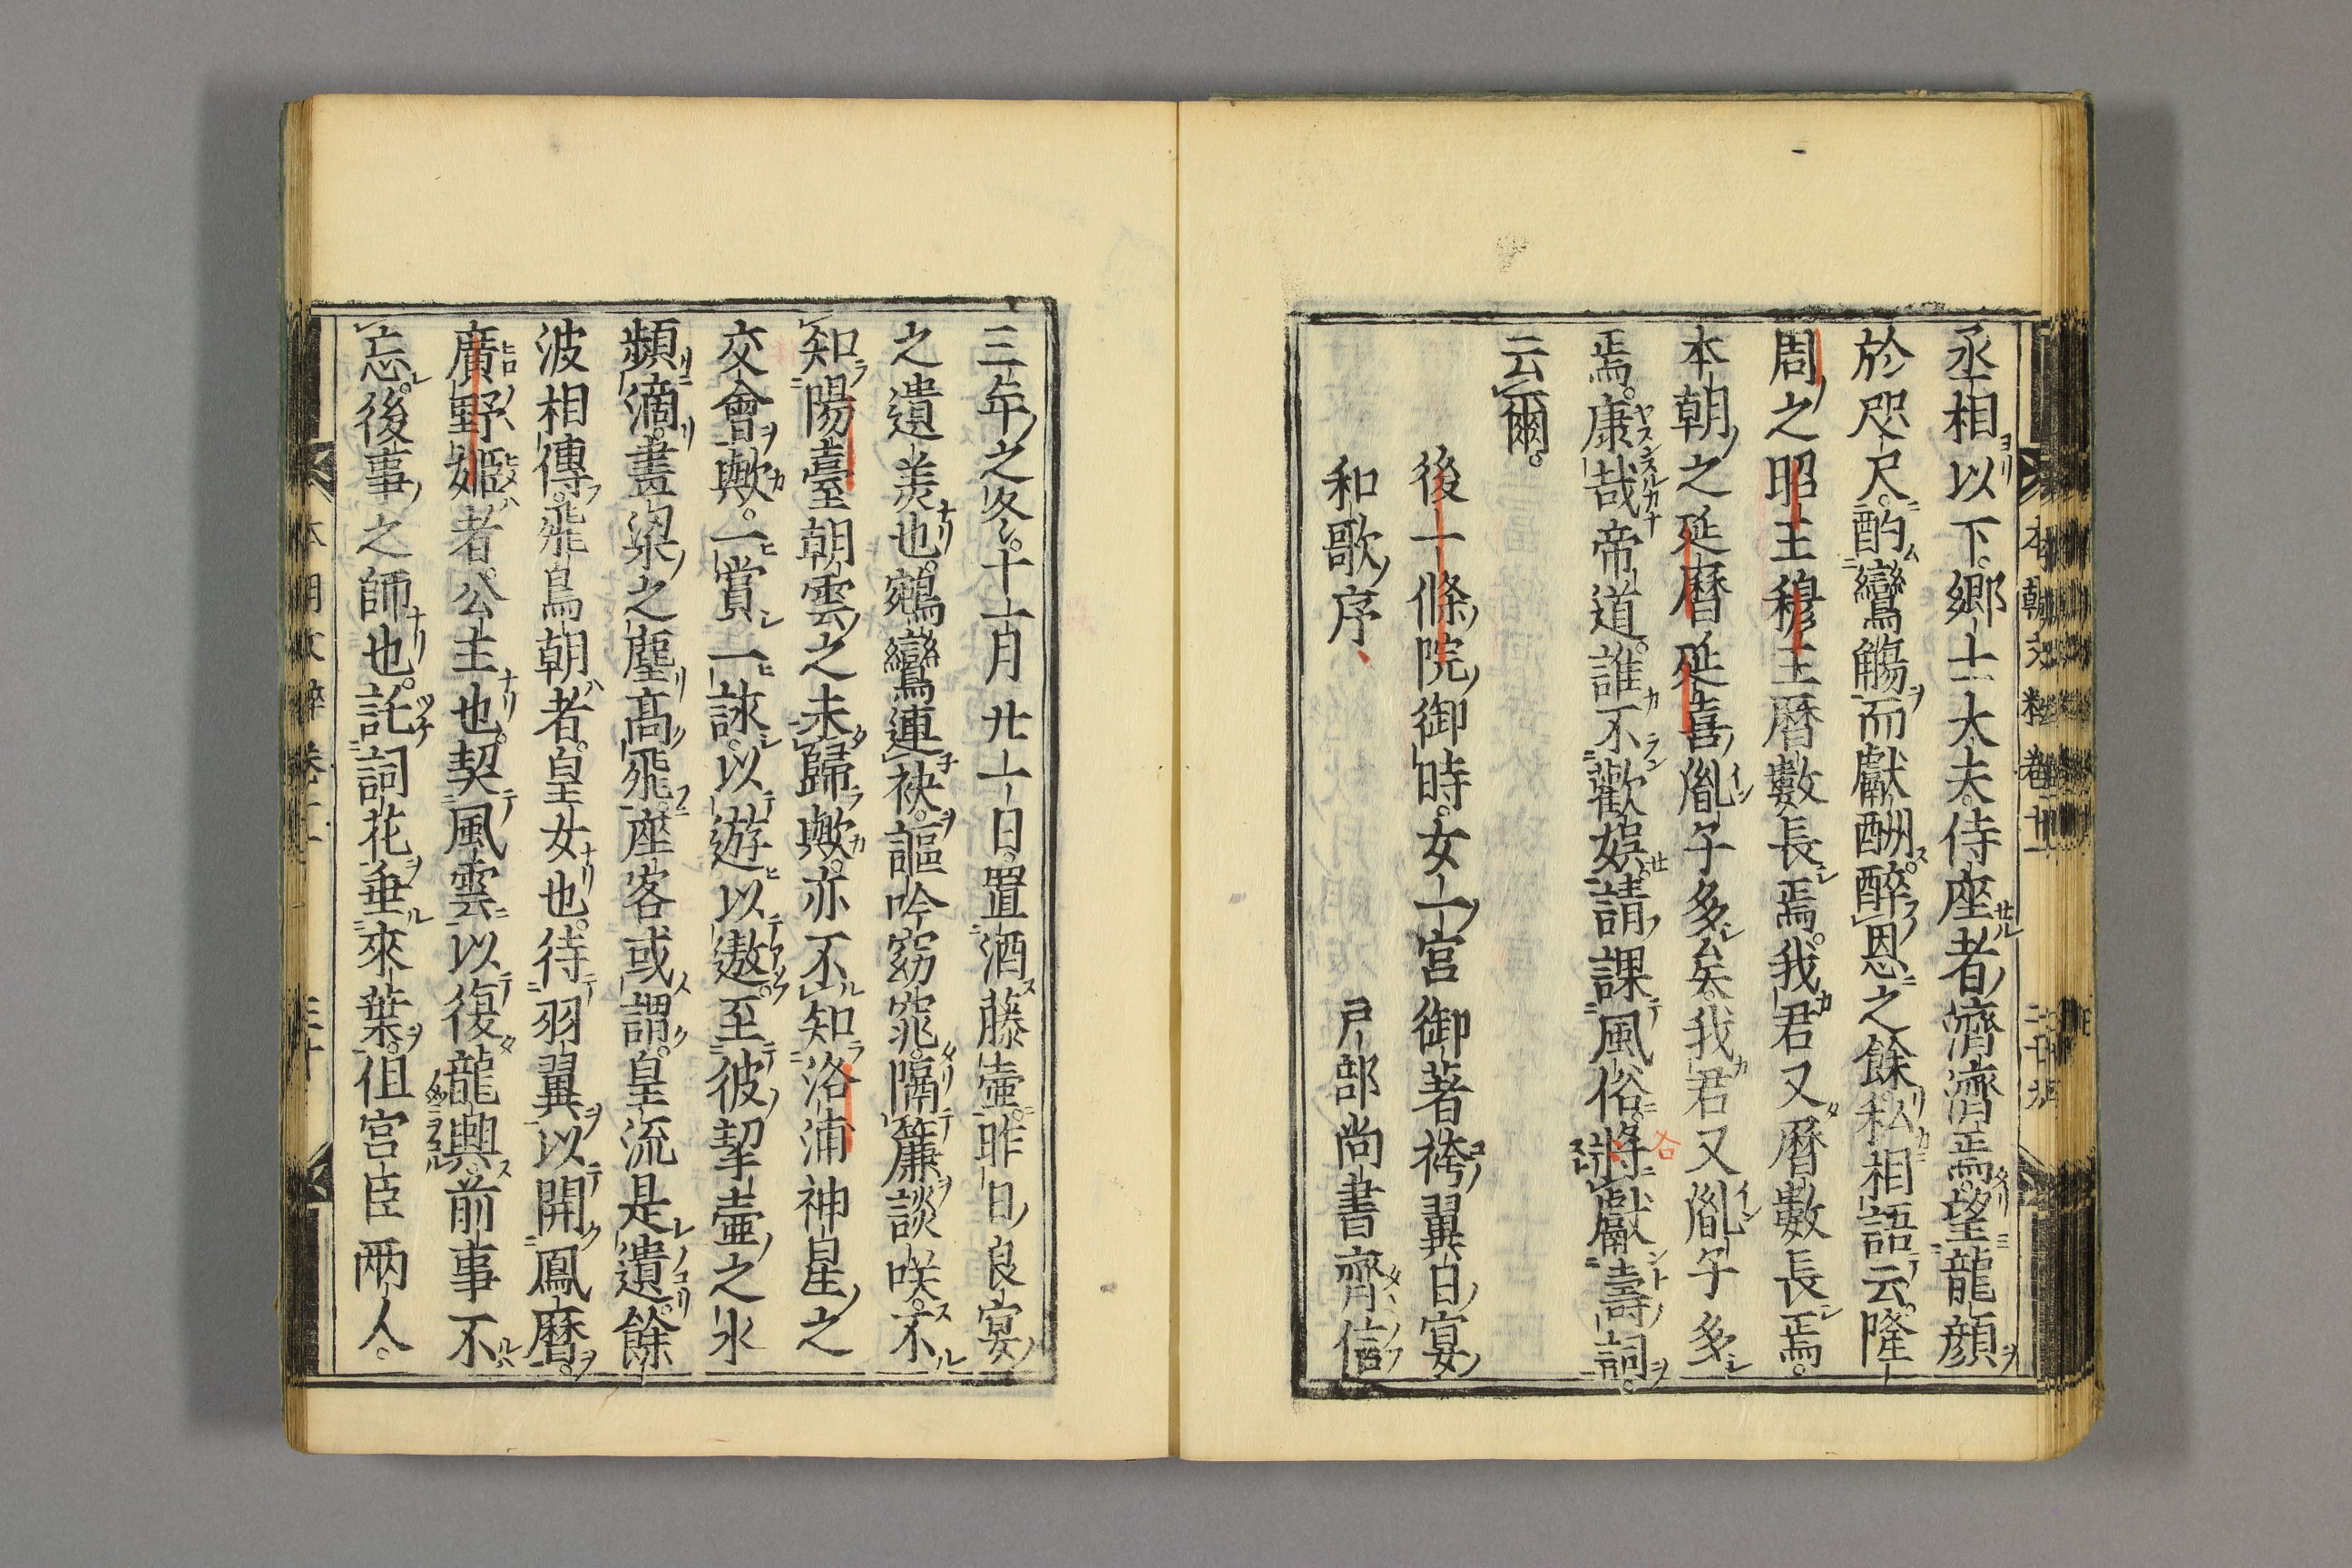 丞相以下。卿士大夫。侍座者濟濟焉。望龍顔
於咫尺。酌鸞觴而獻酬。醉恩之餘。私相語云。隆
周之昭王穆王曆數長焉。我君又曆數長焉。
本朝之延曆延喜胤子多矣。我君又胤子多
焉。康哉帝道。誰不歡娯。請課風俗。將獻壽詞。
云爾。
後一條院御時。女一宮御著袴翼日宴
和歌序、 戸部尚書齊信
三年之冬。十一月廿一日。置酒藤壺。昨日良宴
之遺美也。鵷鸞連袂。謳吟窈窕。隔簾談咲。不
知陽臺朝雲之未歸歟。亦不知洛浦神星之
交會歟。一賞一詠。以遊以遨。至彼挈壺之氷
頻滴。畫梁之塵高飛。座客或謂。皇流是遺。餘
波相傳。飛鳥朝者。皇女也。待羽翼以開鳳曆。
廣野姫者。公主也。契風雲以復龍輿。前事不
忘。後事之師也。託詞花垂來葉。但宮臣兩人。